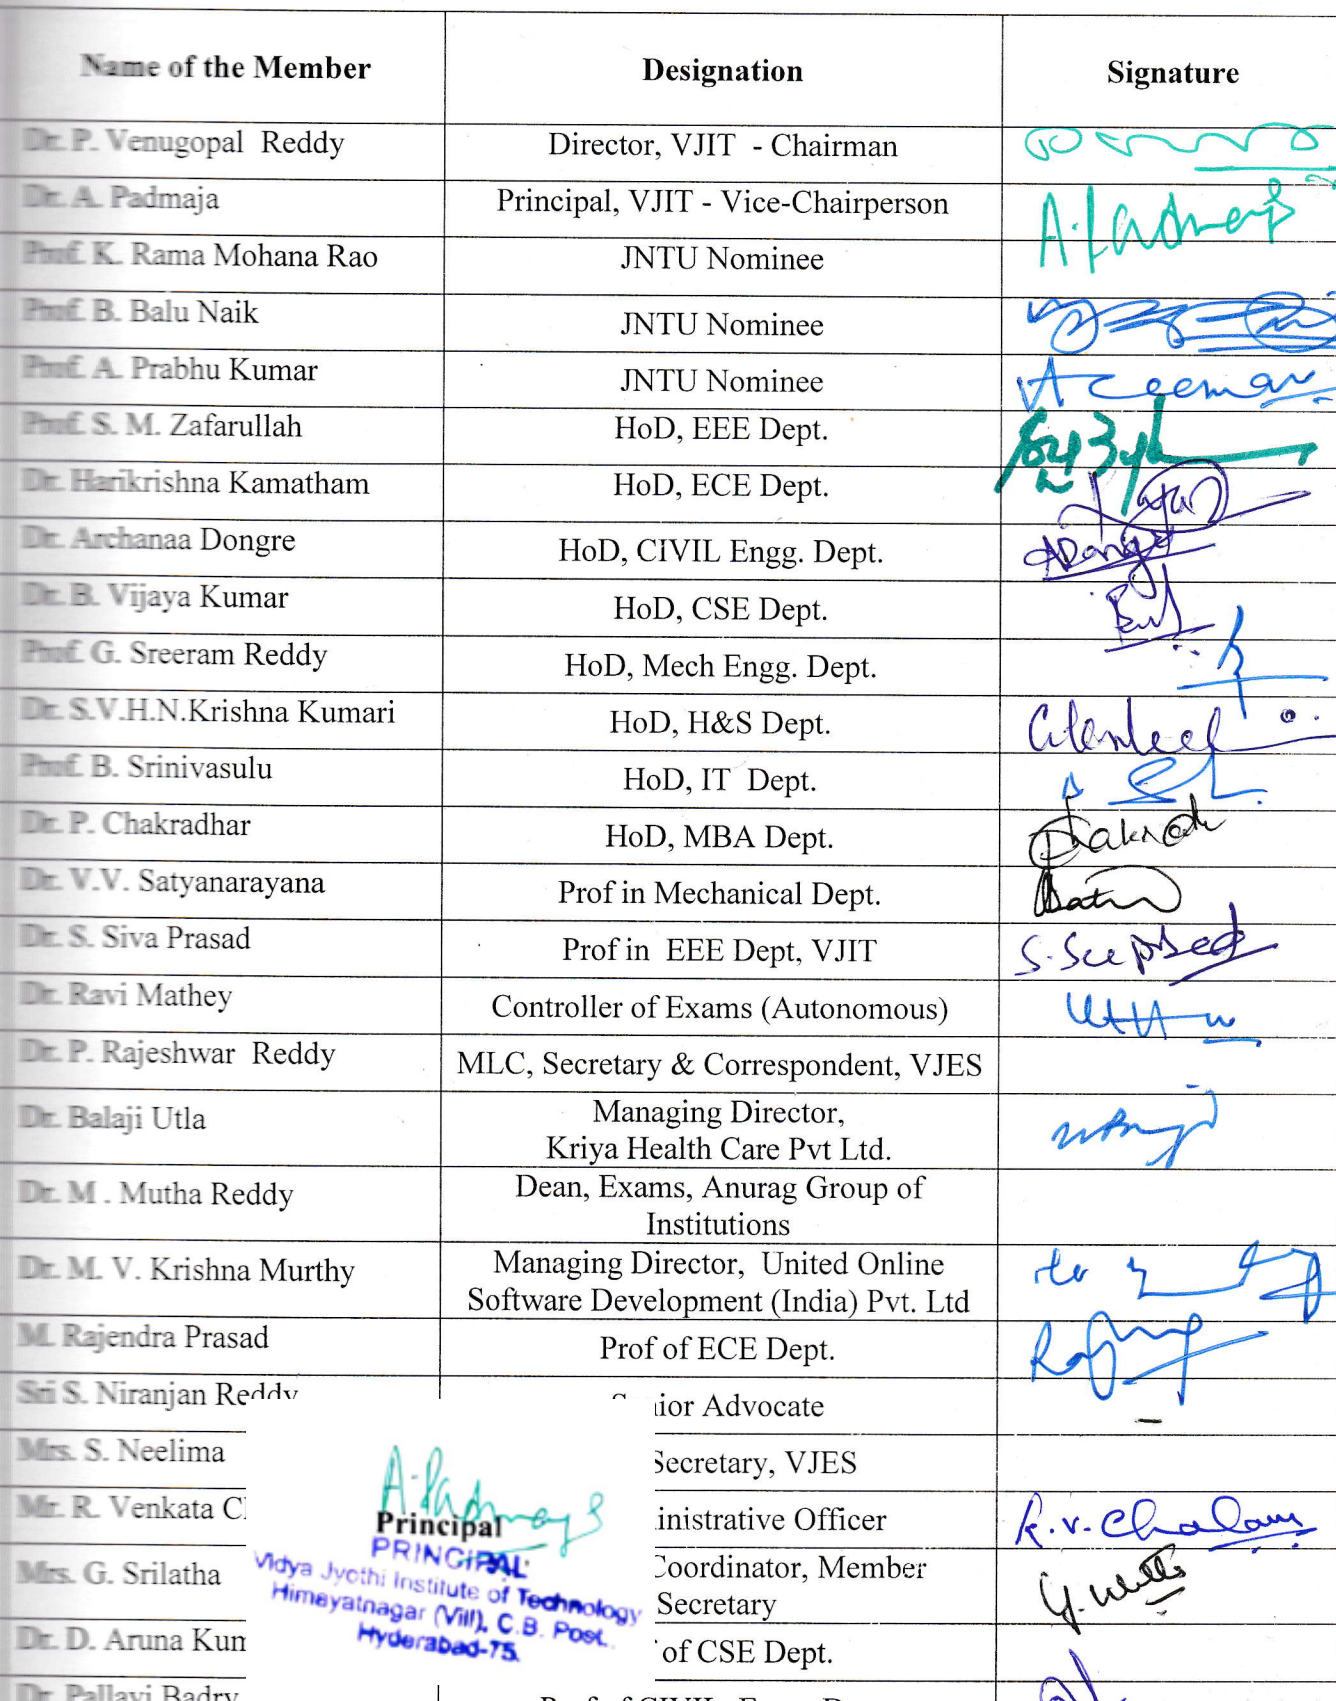 Name of the Member Designation Signature
Dr. P. Venugopal Reddy Director, VJIT - Chairman
Dr. A. Padmaja Principal, VJIT - Vice-Chairperson A. Padmaja
Prof. K. Rama Mohana Rao JNTU Nominee
Prof. B. Balu Naik JNTU Nominee
Prof. A. Prabhu Kumar JNTU Nominee
Prof. S. M. Zafarullah HoD, EEE Dept.
Dr. Harikrishna Kamatham HoD, ECE Dept.
Dr. Archanaa Dongre HoD, CIVIL Engg. Dept.
Dr. B. Vijaya Kumar HoD, CSE Dept.
Prof. G. Sreeram Reddy HoD, Mech Engg. Dept.
Dr. S.V.H.N.Krishna Kumari HoD, H&S Dept.
Prof. B. Srinivasulu HoD, IT Dept.
Dr. P. Chakradhar HoD, MBA Dept.
Dr. V.V. Satyanarayana Prof in Mechanical Dept.
Dr. S. Siva Prasad Prof in EEE Dept, VJIT
Dr. Ravi Mathey Controller of Exams (Autonomous)
Dr. P. Rajeshwar Reddy MLC, Secretary & Correspondent, VJES
Dr. Balaji Utla Managing Director,
Kriya Health Care Pvt Ltd.
Dr. M . Mutha Reddy Dean, Exams, Anurag Group of
Institutions
Dr. M. V. Krishna Murthy Managing Director, United Online
Software Development (India) Pvt. Ltd
M. Rajendra Prasad Prof of ECE Dept.
Sri S. Niranjan Reddy ior Advocate
Mrs. S. Neelima Secretary, VJES
Mr. R. Venkata C inistrative Officer R.V. Chalam
Mrs. G. Srilatha Coordinator, Member
Secretary
Dr. D. Aruna Kum of CSE Dept.
Dr. Pallavi Badry
A. Padmaja
Principal
PRINCIPAL
Vidya Jyothi Institute of Technology
Himayatnagar (Vill), C.B. Post.
Hyderabad-75.